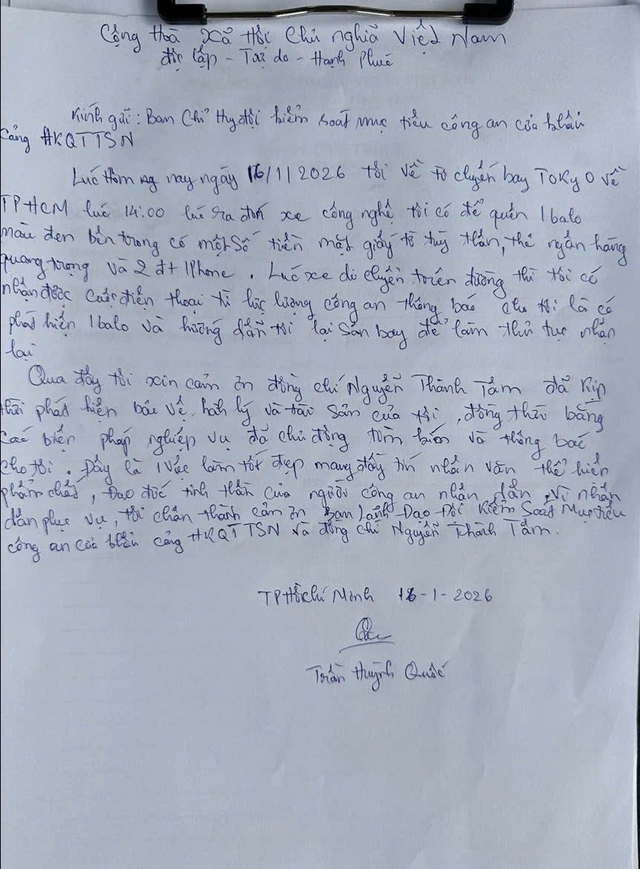 Cộng Hoà Xã Hội Chủ nghĩa Việt Nam
độc lập - Tự do - Hạnh Phúc
Kính gửi: Ban Chỉ Huy đội kiểm soát mục tiêu công an cửa khẩu
cảng HKQTTSN
Lúc Hôm nay ngày 16/1/2026 tôi về từ chuyến bay ToKyO về
TPHCM lúc 14:00 lúc ra đón xe công nghệ tôi có để quên 1 balo
màu đen bên trong có một số tiền mặt giấy tờ tuỳ thân, thẻ ngân hàng
quang trọng và 2 đt IPhone. Lúc xe di chuyển trên đường thì tôi có
nhận được cuộc điện thoại từ lực lượng công an thông báo cho tôi là có
phát hiện 1 balo và hướng dẫn tôi lại sân bay để làm thủ tục nhận
lại
Qua đây tôi xin cảm ơn đồng chí Nguyễn Thành Tâm đã kịp
thời phát hiện bảo vệ hành lý và tài sản của tôi, đồng thời bằng
các biện pháp nghiệp vụ đã chủ động tìm kiếm và thông báo
cho tôi. Đây là 1 việc làm tốt đẹp mang đầy tín nhân văn thể hiện
phẩm chất, Đạo đức tinh thần của người công an nhân dân vì nhân
dân phục vụ, tôi chân thành cảm ơn Ban Lãnh Đạo Đội Kiểm Soát Mục tiêu
công an cửa khẩu cảng HKQTTSN và đồng chí Nguyễn Thành Tâm.
TPHồChí Minh 16-1-2026
Trần Huỳnh Quốc